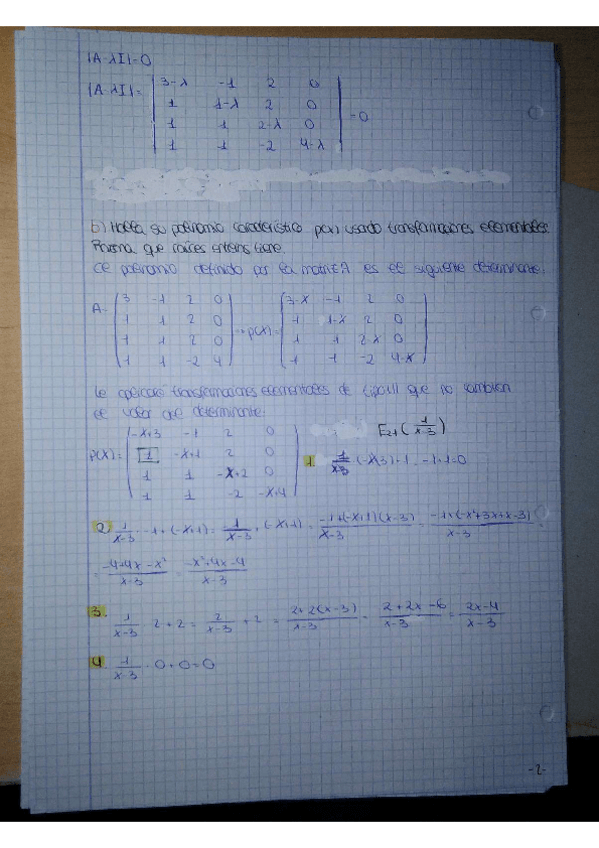 |A-λI|=0
|A-λI|= | 3-λ -1 2 0 |
| 1 1-λ 2 0 | =0
| 1 1 2-λ 0 |
| 1 1 -2 4-λ |
b) Halla su polinomio característico p(x) usando transformaciones elementales.
Razona que raíces enteras tiene.
El polinomio definido por la matriz A es el siguiente determinante:
A= ( 3 -1 2 0 ) → p(x)= ( 3-x -1 2 0 )
( 1 1 2 0 ) ( 1 1-x 2 0 )
( 1 1 2 0 ) ( 1 1 2-x 0 )
( 1 1 -2 4 ) ( 1 1 -2 4-x )
Le aplicaré transformaciones elementales de tipo III que no cambian
el valor del determinante:
p(x)= ( -x+3 -1 2 0 ) E21(1/(x-3))
( 1 -x+1 2 0 ) 1. 1/(x-3) · (-x+3)+1 = -1+1=0
( 1 1 -x+2 0 )
( 1 1 -2 -x+4 )
2. 1/(x-3) · -1 + (-x+1) = -1/(x-3) + (-x+1) = (-1+(-x+1)(x-3))/(x-3) = (-1+(-x²+3x+x-3))/(x-3) =
= (-4+4x-x²)/(x-3) = (-x²+4x-4)/(x-3)
3. 1/(x-3) · 2+2 = 2/(x-3) + 2 = (2+2(x-3))/(x-3) = (2+2x-6)/(x-3) = (2x-4)/(x-3)
4. 1/(x-3) · 0+0=0
-2-